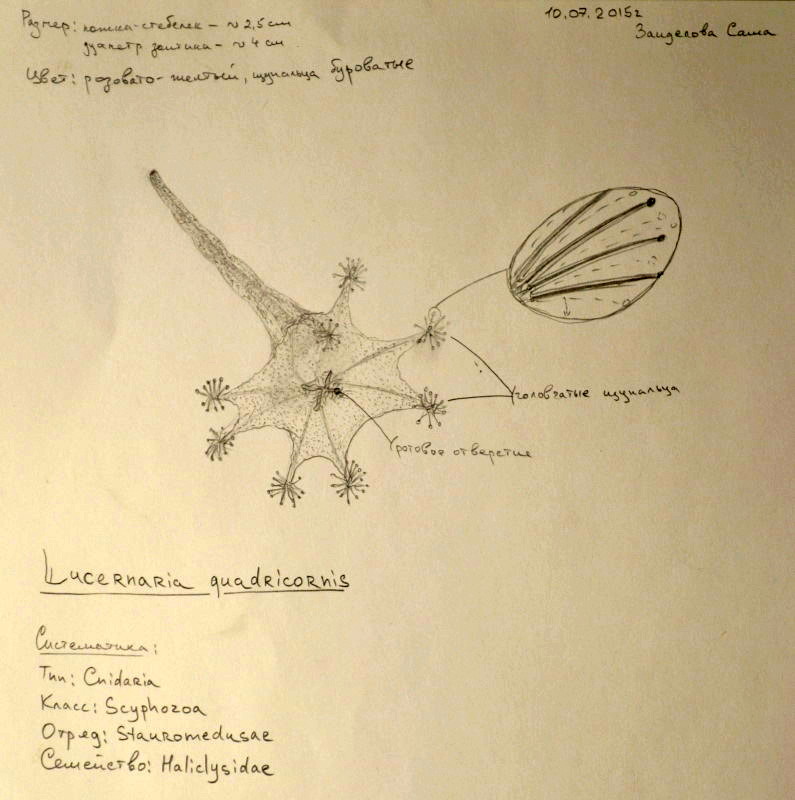 Размер: ножка-стебелек – ~ 2,5 см
диаметр зонтика – ~ 4 см
Цвет: розовато-желтый, щупальца буроватые
10.07.2015г
Занделова Саша
головчатые щупальца
ротовое отверстие
Lucernaria quadricornis
Систематика:
Тип: Cnidaria
Класс: Scyphozoa
Отряд: Stauromedusae
Семейство: Haliclysidae